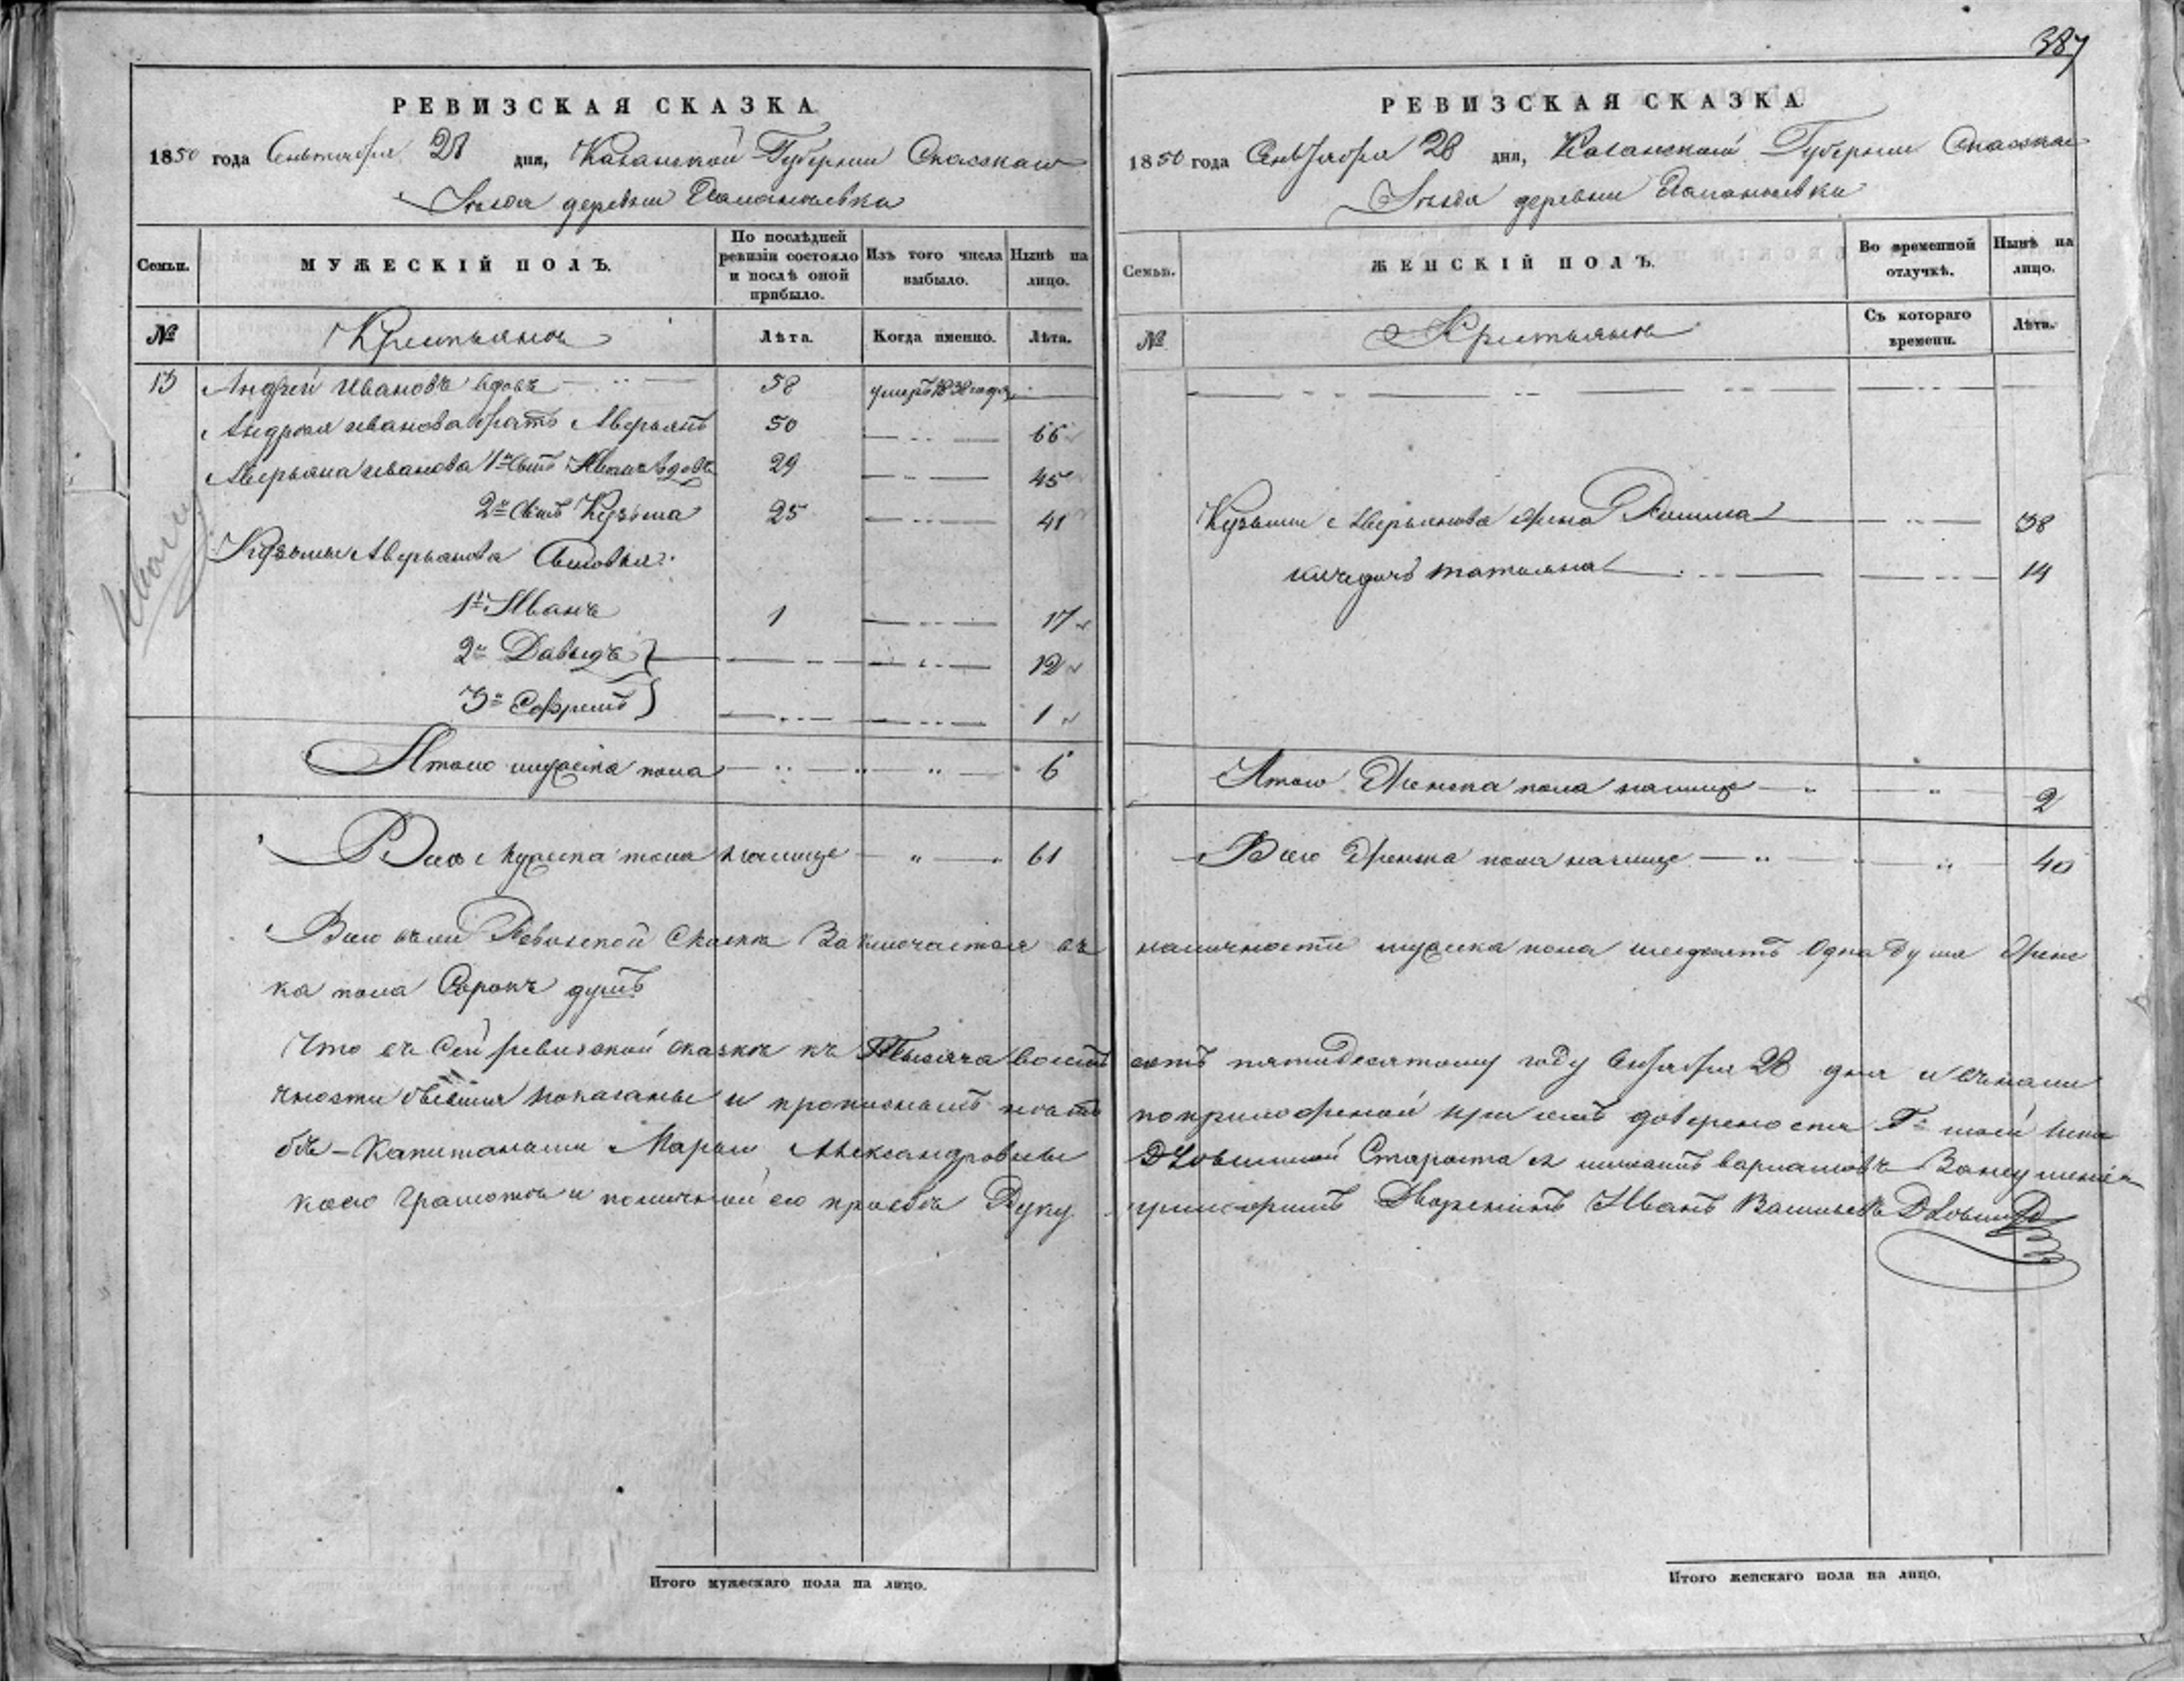 387
РЕВИЗСКАЯ СКАЗКА
1850 года Сентября 28 дня, Казанской Губерніи Спасскаго
Уезда деревни
Семьи.
МУЖЕСКІЙ ПОЛЪ.
По послѣдней ревизіи состояло и послѣ оной прибыло.
Изъ того числа выбыло.
Нынѣ на лицо.
№
Крестьяне
Лѣта.
Когда именно.
Лѣта.
13 Андрей Ивановъ вдовъ 58 умеръ 1838 года
Андрея иванова братъ Аверьянъ 50 66
Аверьяна иванова 1й сынъ Иванъ вдовъ 29 45
2й сынъ Кузьма 25 41
Кузьмы Аверьянова Сыновья:
1й Иванъ 1 17
2й Давыдъ 12
3й Ефремъ 1
Итого мужеска пола 6
Всего Мужеска пола налицо 61
Итого мужескаго пола на лицо.
РЕВИЗСКАЯ СКАЗКА
1850 года Сентября 28 дня, Казанской Губерніи Спасскаго
Уезда деревни
Семьи.
ЖЕНСКІЙ ПОЛЪ.
Во временной отлучкѣ.
Нынѣ на лицо.
№
Крестьяне
Съ котораго времени.
Лѣта.
Кузьмы Аверьянова жена 38
дочь татьяна 14
Итого Женска пола налицо 2
Всего Женска пола налицо 40
Всего въ сей Ревизской Сказке Заключается въ наличности мужска пола шесдесятъ Одна душа женс
ка пола Сорокъ душъ
Что въ Сей ревизской сказке къ Тысяча восемь сотъ пятидесятому году Сентября 28 дня и
чности показаны и по приложеной при семъ довереность Г. моей
Капитанши Марьи Александровны Староста
грамоте и по личной его прозбе Руку приложилъ Дворенинъ Иванъ Васильевъ
Итого женскаго пола на лицо.